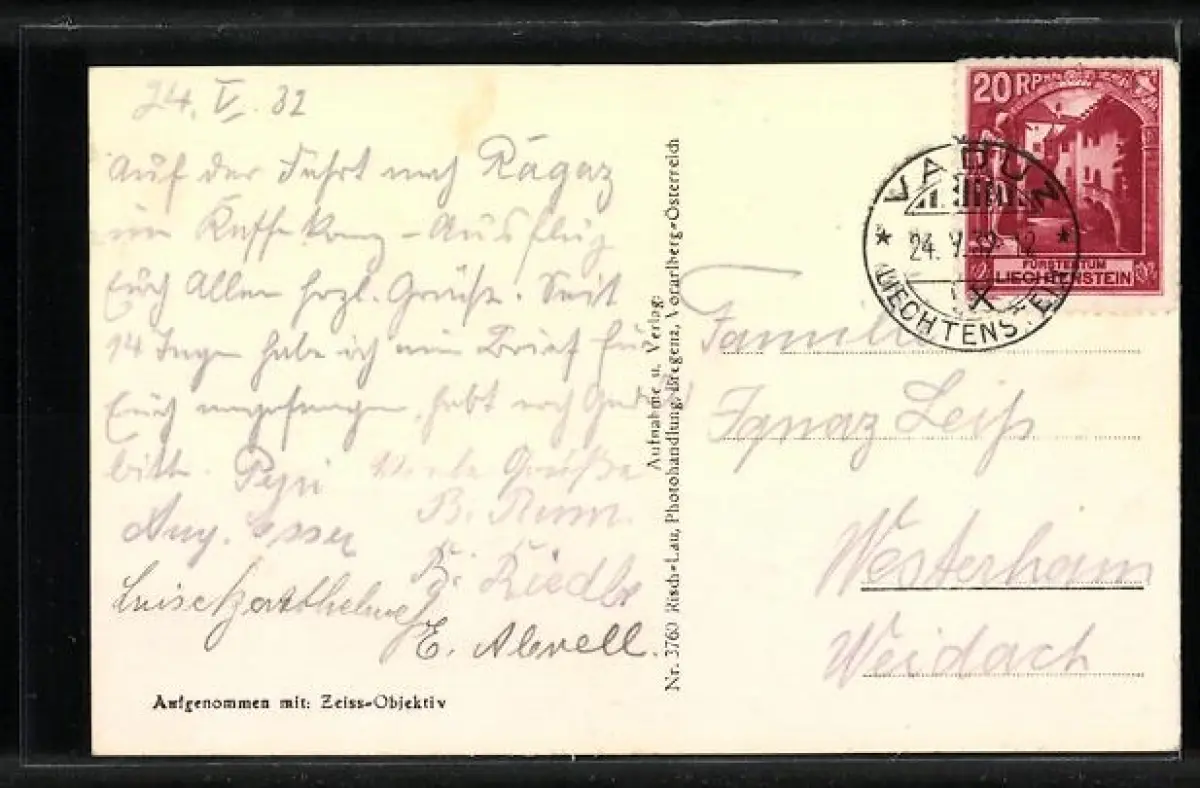 24. V. 32
Auf der Fahrt nach Ragaz
im Ausflug
Euch Allen herzl. Grüße. Seit
14 Tagen habe ich ein Brief für
Euch angefangen, habt noch Geduld
bitte. Pepi Viele Grüße
B.
Aug. Esser
K. Riedle
E.
Aufgenommen mit: Zeiss-Objektiv
Nr. 3760 Risch-Lau, Photohandlung, Bregenz, Vorarlberg-Österreich
Aufnahme u. Verlag:
20 RP
FÜRSTENTUM
LIECHTENSTEIN
VADUZ
24. V. 32
LIECHTENSTEIN
Familie
Ignaz Leiß
Westerham
Weidach